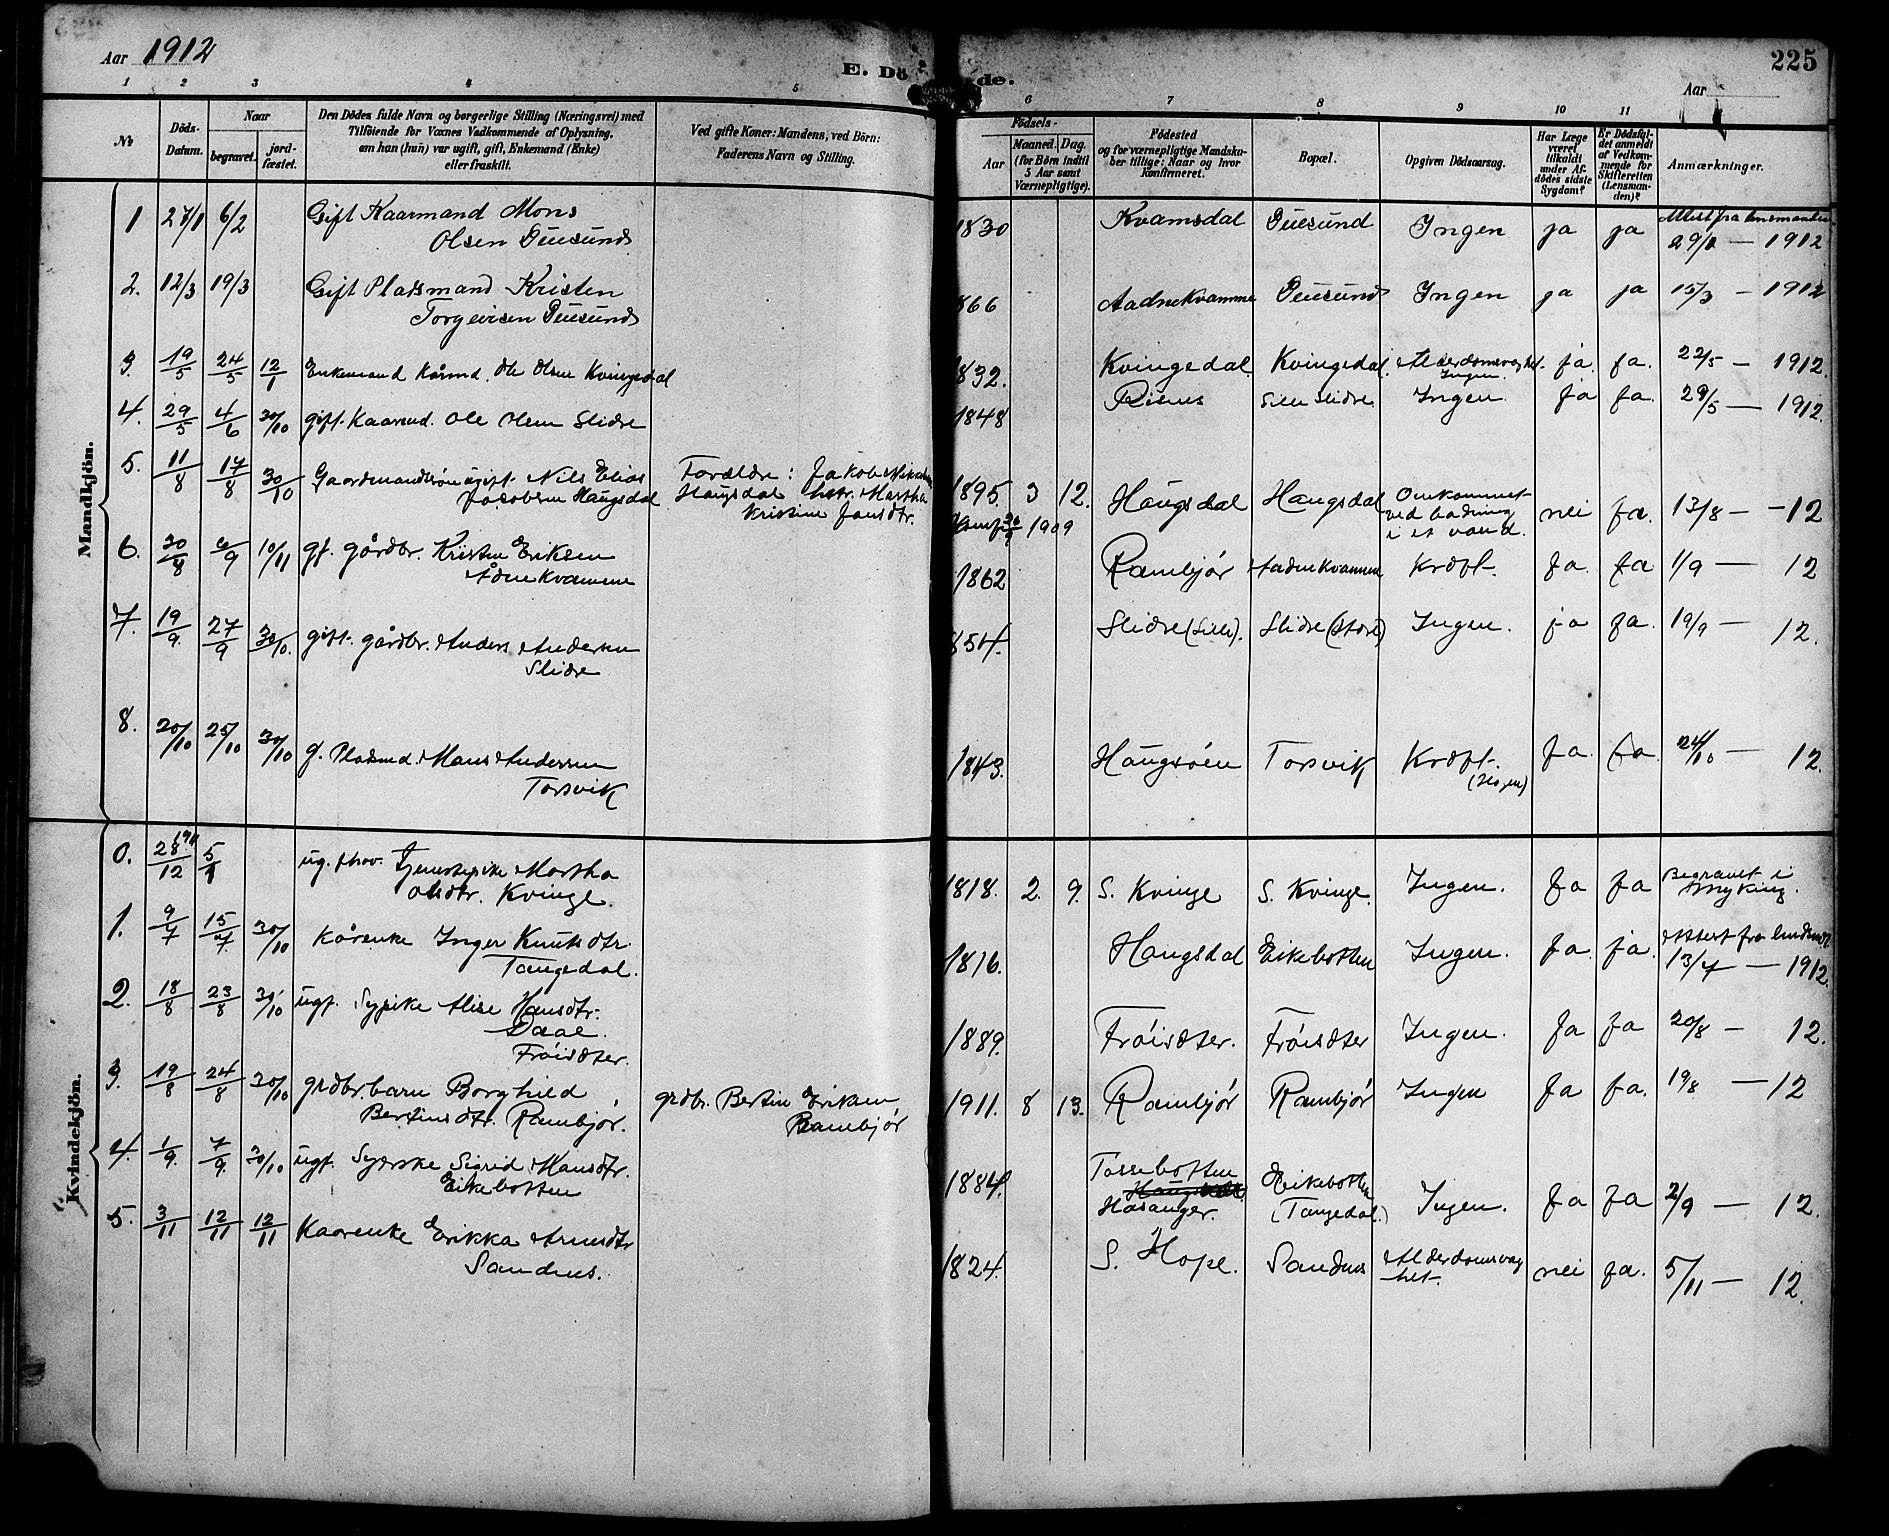 Aar 1912
E. Dö de.
225
Aar
1 2 3 4 5 6 7 8 9 10 11
No
Döds-Datum.
Naar
begravet.
jord-fæstet.
Den Dödes fulde Navn og borgerlige Stilling (Næringsvei) med
Tilföiende for Voxnes Vedkommende af Oplysning,
om han (hun) var ugift, gift, Enkemand (Enke)
eller fraskilt.
Ved gifte Koner: Mandens, ved Börn:
Faderens Navn og Stilling.
Födsels-
Aar
Maaned. Dag.
(for Börn indtil
5 Aar samt
Værnepligtige).
Födested
og for værnepligtige Mandska-
ber tillige: Naar og hvor
konfirmeret.
Bopæl.
Opgiven Dödsaarsag.
Har Læge
været
tilkaldt
under Af-
dödes sidste
Sygdom?
Er Dödsfal-
det anmeldt
af Vedkom-
mende for
Skifteretten
(Lensman-
den)?
Anmærkninger.
Mandkjön.
1 27/1 6/2 Gift Kaarmand Mons 1830 Kvamsdal Duesund Ingen ja ja Attest fra lensmanden
Olsen Duesund 29/1 — 1912
2. 12/3 19/3 Gift Pladsmand Kristen 866 Aadnekvamme Duesund Ingen ja ja 15/3 — 1912
Torgeirsen Duesund
3. 19/5 24/5 12/1 Enkemand kårmd. Ole Olsen Kvingedal 832. Kvingedal Kvingedal. Alderdomsvaghet. ja. ja. 22/5 — 1912.
Ingen.
4. 29/5 4/6 30/10 gift. Kaarmd. Ole Olsen Slidre 1848 Slidre. Ingen. ja ja. 29/5 — 1912.
5. 11/8 17/8 30/10 Gaardmandssøn ugift. Nils Elias Forældre: Jakob 1895 3 12. Haugsdal Haugsdal Omkommet nei ja. 13/8 — 12
Jacobsen Haugsdal Haugsdal hstr. Martha 1909 ved badning
Kristine Jansdtr. i et vand.
6. 30/8 6/9 10/11 gf. gårdbr. Kristen Eriksen 1862 Rambjør Aadnekvamme Kræft. Ja. ja 1/9 — 12
Ådnekvamme
7. 19/9. 27/9 30/10. gift. gårdbr. Anders Andersen 854. Slidre (Lille). Slidre (Store) Ingen. ja ja. 19/9 — 12.
Slidre
8. 20/10 25/10 30/10 g. Pladsmd. Mons Andersen 1843. Haugsøen Torsvik Kræft. Ja. ja. 24/10 — 12.
Torsvik
Kvindekjön.
0. 28/12 1911 5/1 ug. fhv. Tjenestepike Martha 1818. 2. 9. S. Kvinge S. Kvinge. Ingen. Ja ja Begravet i
Olsdtr. Kvinge. Myking.
1. 9/7 15/7. 30/10 Kårenke Inger Knutsdtr. 1816. Haugsdal Eikebotten Ingen. Ja. ja. Attest fra
Tangedal. 13/7 — 1912.
2. 18/8 23/8 30/10 ugf. Sypike Alise Hansdtr. 1889. Frøisdter. Frøisdter Ingen. Ja ja 20/8 — 12.
Daae.
Frøisdter.
3. 19/8 24/8 30/10 grdbr. barn Borghild grdbr. Bertin Eriksen 1911. 8 13. Rambjør Rambjør Ingen Ja ja. 19/8 — 12
Bertinsdtr. Rambjør. Rambjør
4. 1/9. 7/9. 30/10 ugf. Syerske Sigrid Monsdtr. 1884. Eikebotten Ingen. Ja ja 2/9 — 12.
Eikebotten Hosanger. (Tangedal.)
5. 3/11 12/11 12/11 Kaarenke Erikka Arnesdtr 1824. S. Hope. Sandnes Alderdomsvag nei ja. 5/11 — 12.
Sandnes. -het.